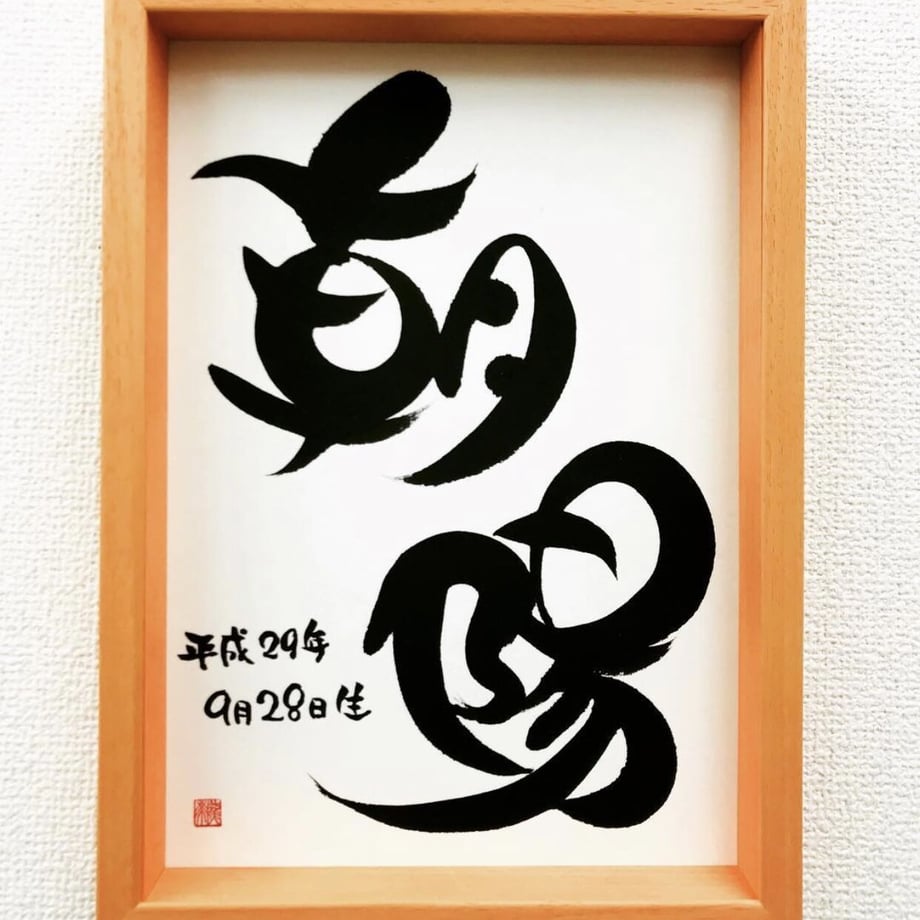 朝陽
平成29年
9月28日生